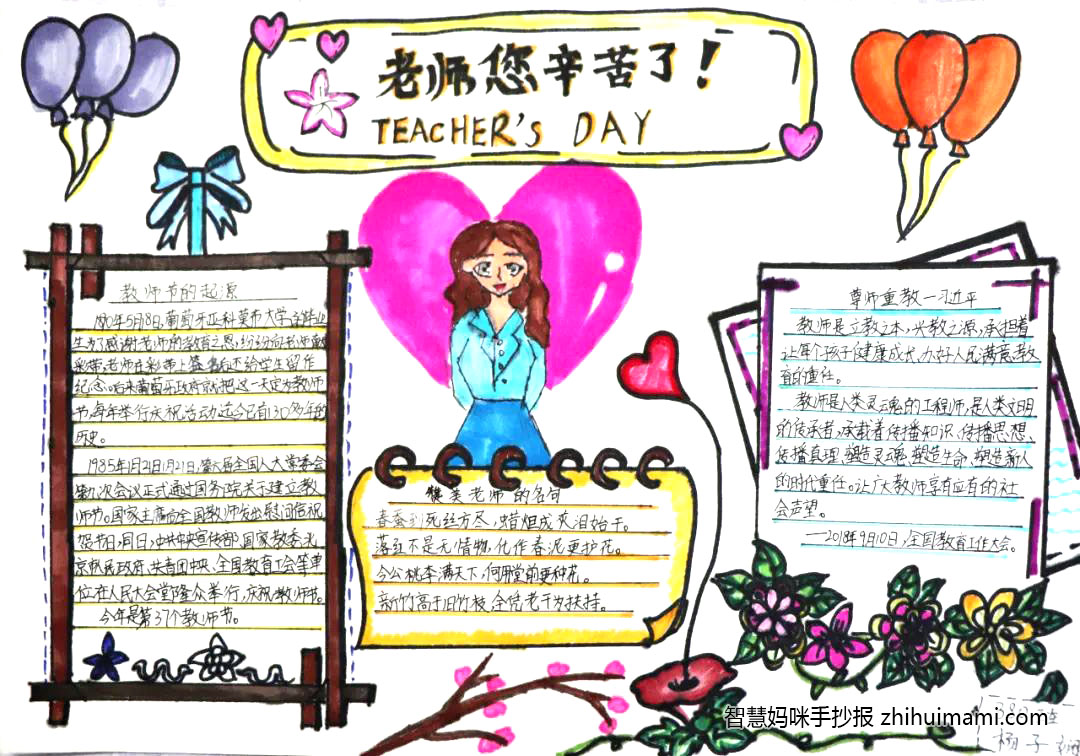 老师您辛苦了！
TEACHER'S DAY
教师节的起源
1890年5月18日，葡萄牙亚科英布市大学
生为了感谢老师的教育之恩，纷纷向老师
彩带，老师在彩带上签名后还给学生留作
纪念。后来葡萄牙政府就把这一天定为教师
节，每年举行庆祝活动迄今已有130多年的
历史。
1985年1月21日1月21日，第六届全国人大常委会
第九次会议正式通过国务院关于建立教
师节。国家主席向全国教师发出慰问信祝
贺节日，同日，中共中央宣传部，国家教委，北
京市人民政府，共青团中央，全国教育工会等单
位在人民大会堂隆众举行，庆祝教师节。
今年是第37个教师节。
赞美老师的名句
春蚕到死丝方尽，蜡炬成灰泪始干。
落红不是无情物，化作春泥更护花。
今公桃李满天下，何用堂前更种花。
新竹高于旧竹枝，全凭老干为扶持。
尊师重教一习近平
教师是立教之本，兴教之源，承担着
让每个孩子健康成长，办好人民满意教
育的重任。
教师是人类灵魂的工程师，是人类文明
的传承者，承载着传播知识、传播思想、
传播真理，塑造灵魂、塑造生命、塑造新人
的时代重任。让广大教师享有应有的社
会声望。
—2018年9月10日，全国教育工作大会。
智慧妈咪手抄报 zhihuimami.com